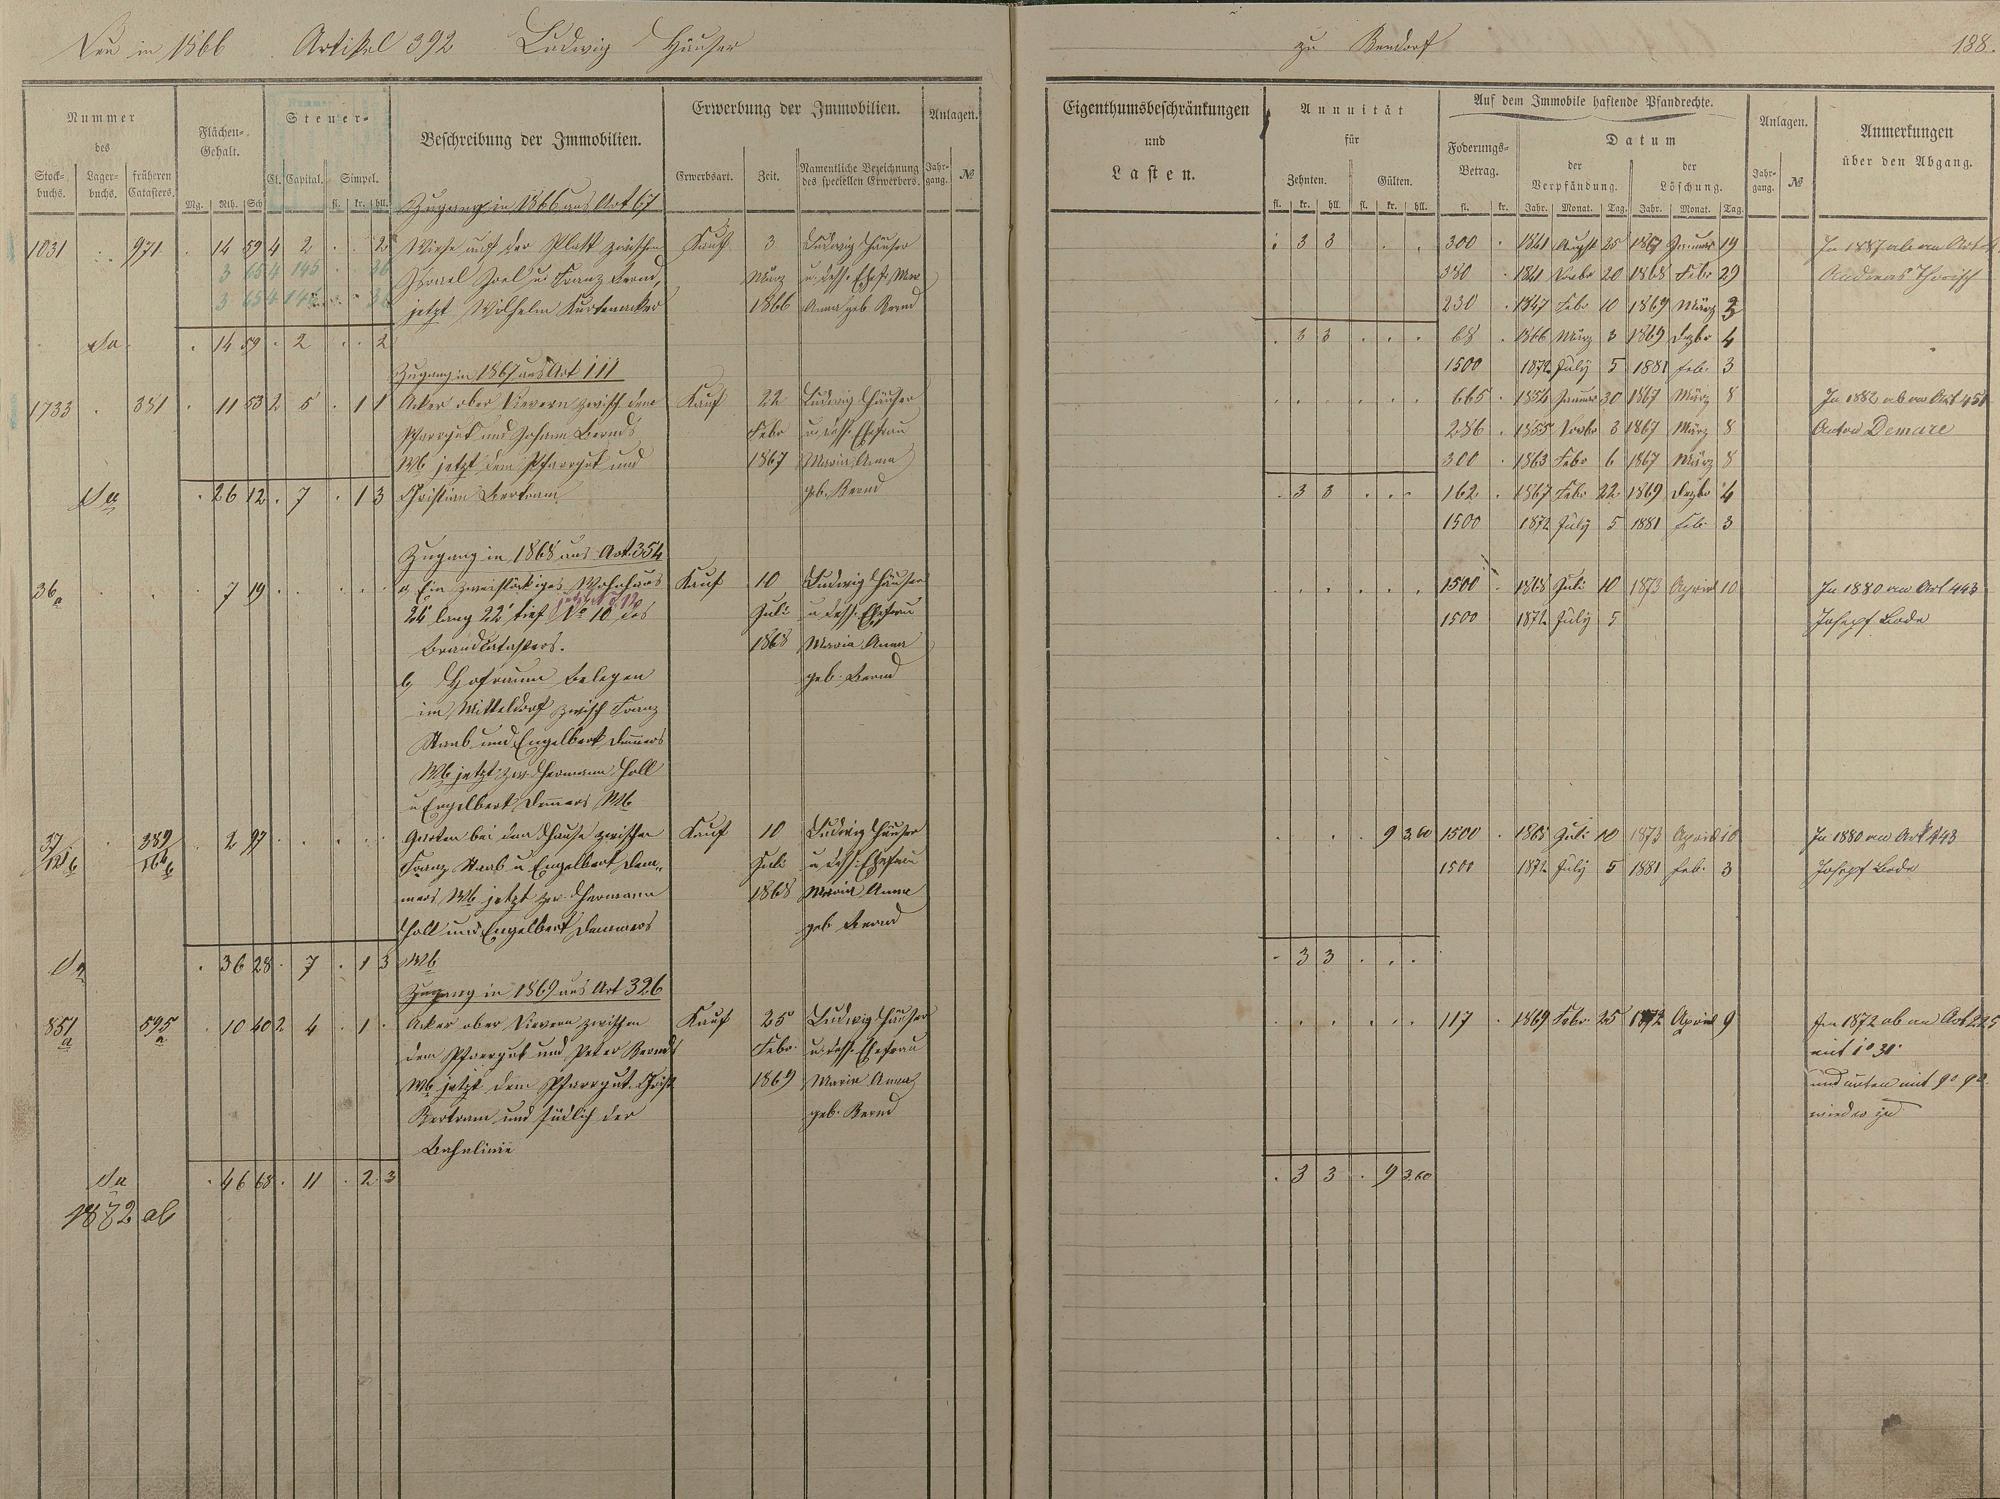 Neu in 1866 Artikel 392 Ludwig Häuser
Nummer des
Stock-buchs. Lager-buchs. früheren Catasters.
Flächen-Gehalt.
Mg. Rth. Sch
Steuer-
Cl. Capital. Simpel.
fl. kr. hll.
Beschreibung der Immobilien.
Erwerbung der Immobilien.
Erwerbsart. Zeit. Namentliche Bezeichnung des speciellen Erwerbers.
Anlagen.
Jahr-gang. №
Zugang in 1866 aus Art 67
1031 971 14 59 4 2 2 Wiese auf der Platt zwischen Kauf 3 Ludwig Häuser
3 65 4 145 36 Israel Joel u Franz Bernd, März u. dess. Ehefr. Mar
3 65 4 36 jetzt Wilhelm 1866 Anna geb Bernd
14 59 2 2
Zugang in 1867 aus Art 111
1733 381 11 53 2 5 1 1 Acker ober Lievern zwisch dem Kauf 22 Ludwig Häuser
Pfarrgut und Johann Bernds Febr u. dess. Ehefrau
Wb jetzt dem Pfarrgut und 1867 Maria Anna
26 12 7 1 3 Christian Bertram geb. Bernd
Zugang in 1868 aus Art. 354
36 a 7 19 a Ein zweistöckiges Wohnhaus Kauf 10 Ludwig Häuser
lang 22' tief № 10 des Juli u dess. Ehefrau
Brandkatasters. 1868 Maria Anna
b, Hofraum belegen geb. Bernd
im Mitteldorf zwisch Franz
Staab und Engelbert Demmers
Wb jetzt zw. Hermann Holl
u Engelbert Demmers Wb
37 389 2 97 Garten bei dem Hause zwischen Kauf 10 Ludwig Häuser
Franz Staab u Engelbert Dem„ Juli u dess. Ehefrau
mers Wb jetzt zw. Hermann 1868 Maria Anna
Holl und Engelbert Demmers geb Bernd
36 28 7 1 3 Wb
Zugang in 1869 aus Art 326
851 a 595 a 10 40 2 4 1 Acker ober Lievern zwischen Kauf 25 Ludwig Häuser
dem Pfarrgut und Peter Bernds Febr. u. dess. Ehefrau
Wb jetzt dem Pfarrgut. Christ 1869 Maria Anna
Bertram und südlich der geb. Bernd
Bahnlinie
46 68 11 2 3
1872 ab
zu 188.
Eigenthumsbeschränkungen und Lasten.
Annuität für
Zehnten. Gülten.
fl. kr. hll. fl. kr. hll.
Auf dem Immobile haftende Pfandrechte.
Foderungs-Betrag. Datum
der Verpfändung. der Löschung.
fl. kr. Jahr. Monat. Tag. Jahr. Monat. Tag.
Anlagen.
Jahr-gang. №
Anmerkungen über den Abgang.
3 3 300 1841 Augst 25 1867 Januar 19 In 1887 ab an Art
380 1841 Novbr 20 1868 Febr 29 Andreas
230 1847 Febr 10 1869 März 2
3 3 68 1866 März 3 1869 Dezbr 4
1500 1872 July 5 1881 Feb. 3
665 1854 Januar 30 1867 März 8 In 1882 ab an Art 451
286 1855 Novbr 3 1867 März 8 Anton Demare
300 1863 Febr 6 1867 März 8
3 3 162 1867 Febr 22 1869 Dezbr 4
1500 1872 July 5 1881 Feb. 3
1500 1868 Juli 10 1873 April 10 In 1880 an Art 443
1500 1872 July 5 Joseph Bode
9 3.60 1500 1868 Juli 10 1873 April 10 In 1880 an Art 443
1500 1872 July 5 1881 Feb. 3 Joseph Bode
3 3
117 1869 Febr. 25 1872 April 9 In 1872 ab an Art 225
und unten mit
wieder zu
3 3 9 3.60